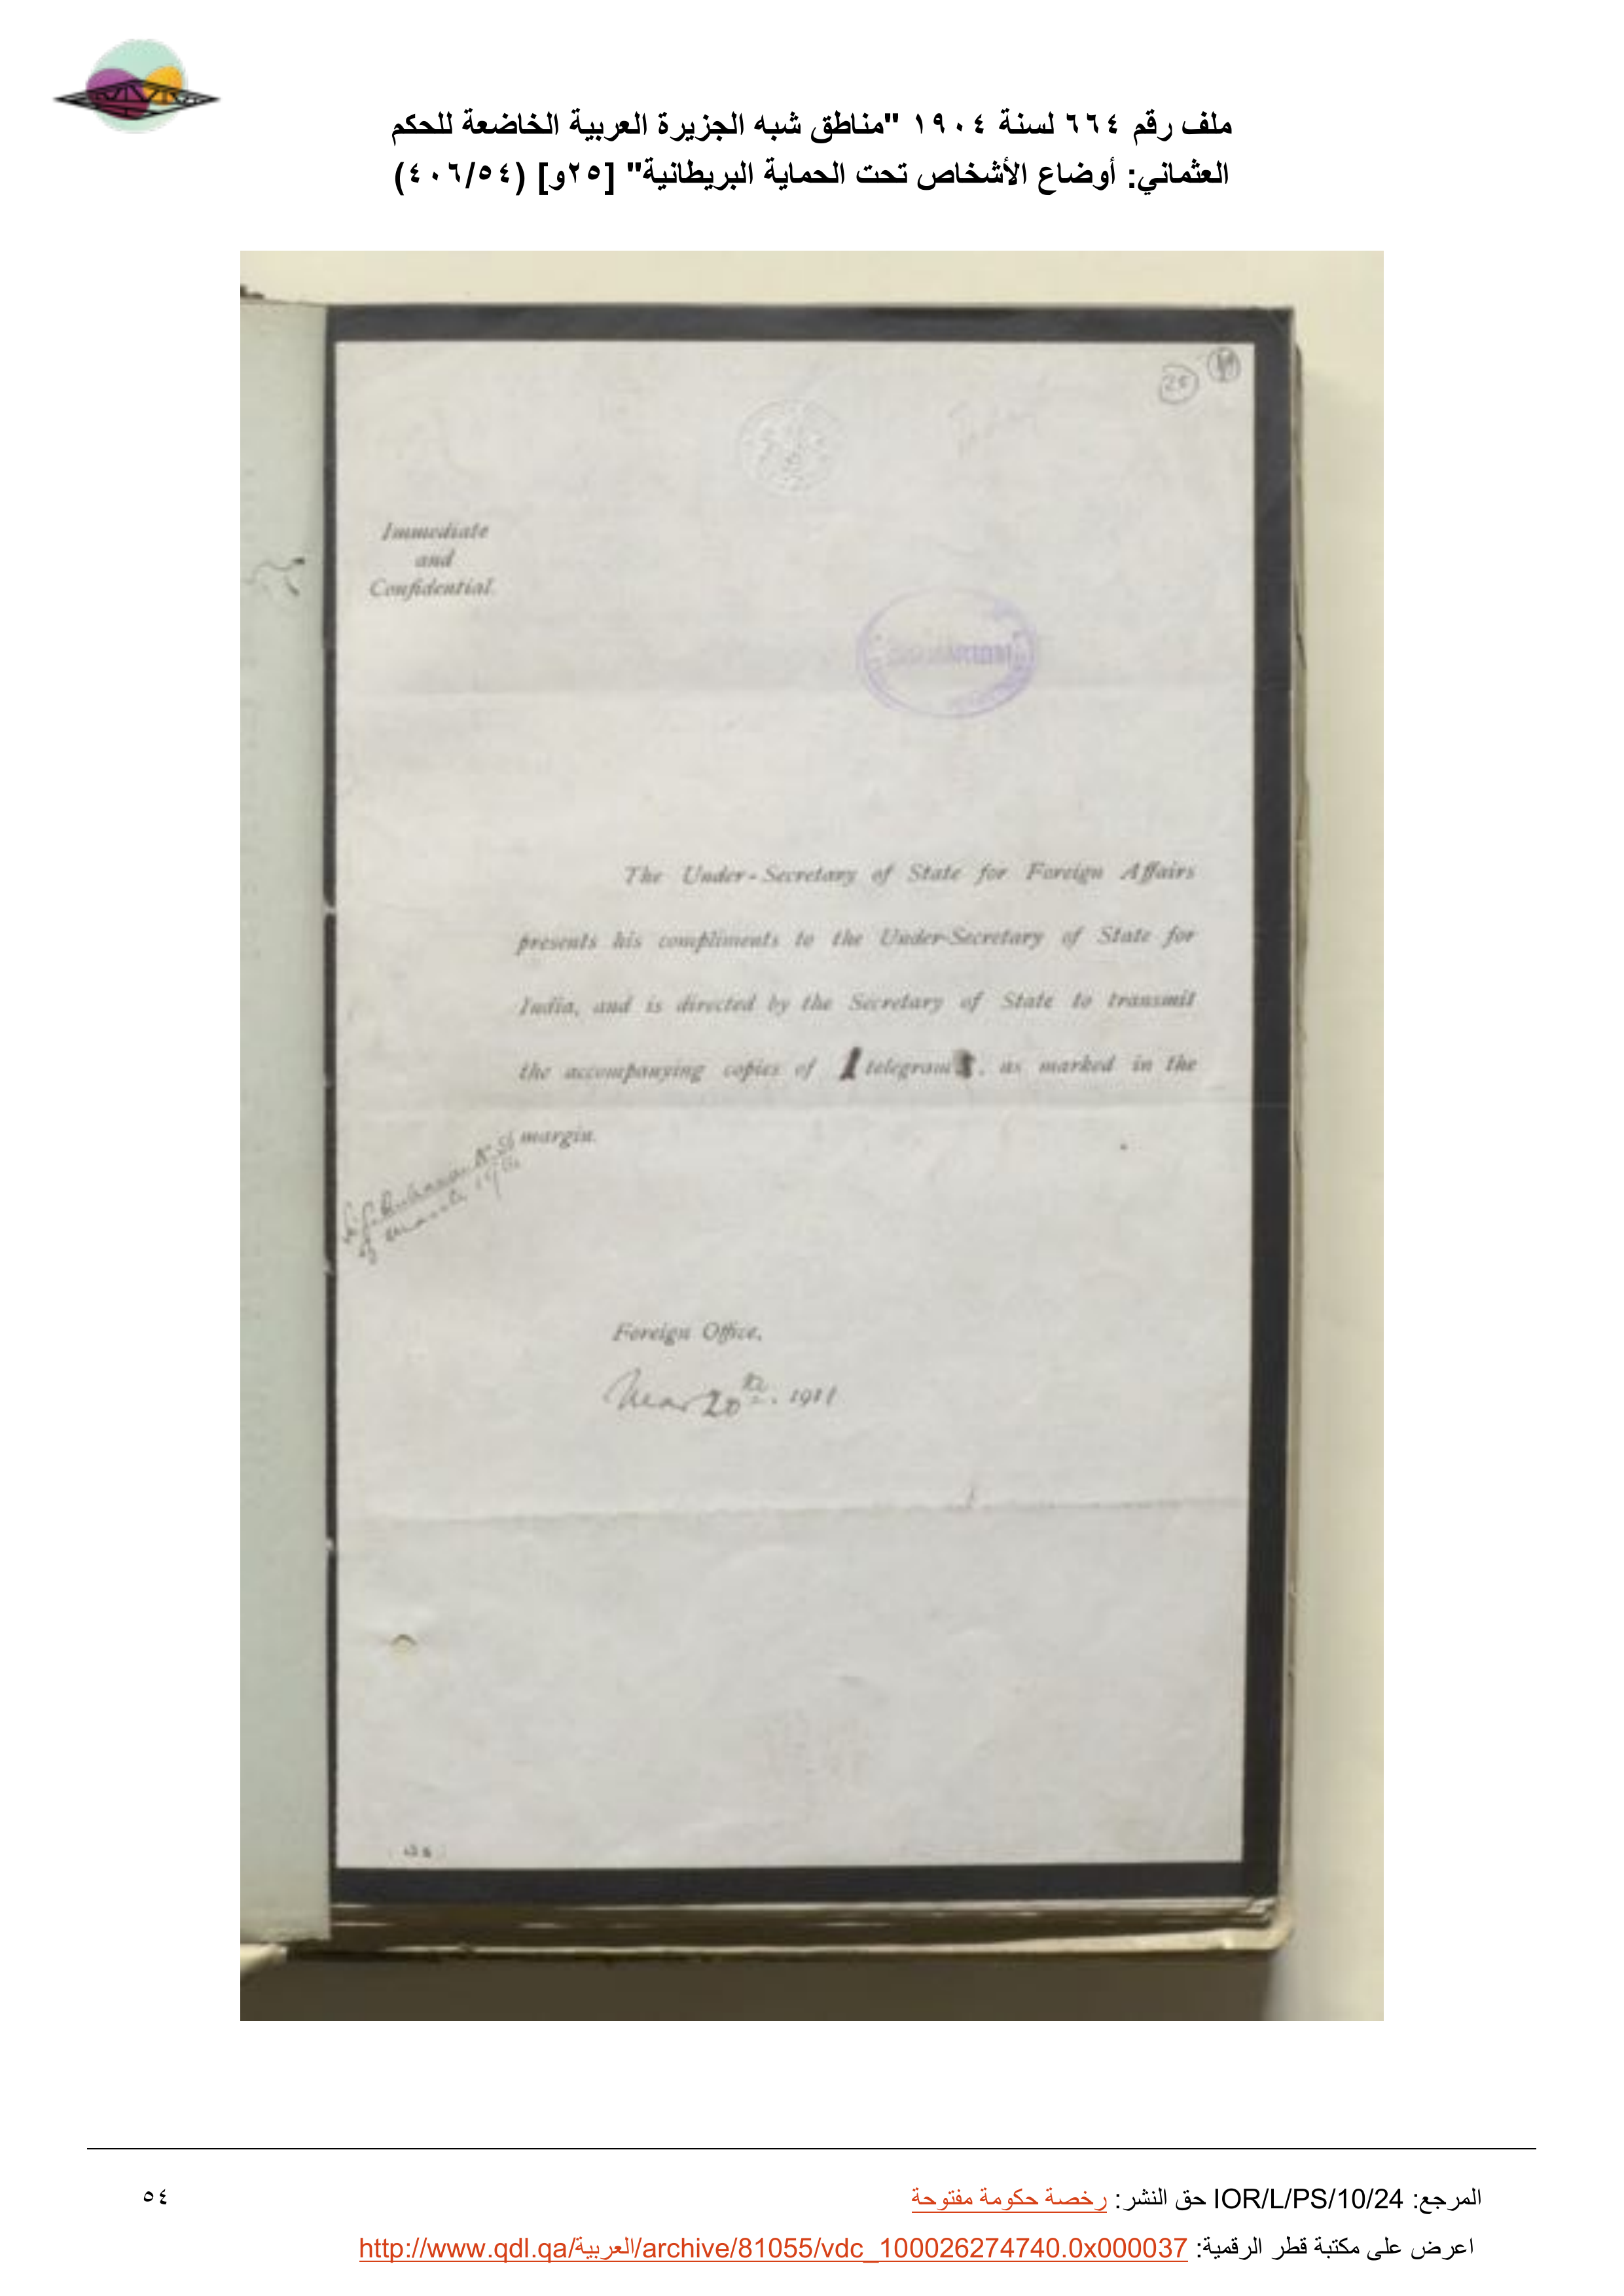 ملف رقم ٦٦٤ لسنة ١٩٠٤ "مناطق شبه الجزيرة العربية الخاضعة للحكم
العثماني: أوضاع الأشخاص تحت الحماية البريطانية" [٢٥و] (٤٠٦/٥٤)
25
Immediate
and
Confidential.
The Under-Secretary of State for Foreign Affairs
presents his compliments to the Under-Secretary of State for
India, and is directed by the Secretary of State to transmit
the accompanying copies of 1 telegram, as marked in the
margin.
Foreign Office,
Mar 20th. 1911
المرجع: IOR/L/PS/10/24 حق النشر: رخصة حكومة مفتوحة
٥٤
اعرض على مكتبة قطر الرقمية: http://www.qdl.qa/العربية/archive/81055/vdc_100026274740.0x000037